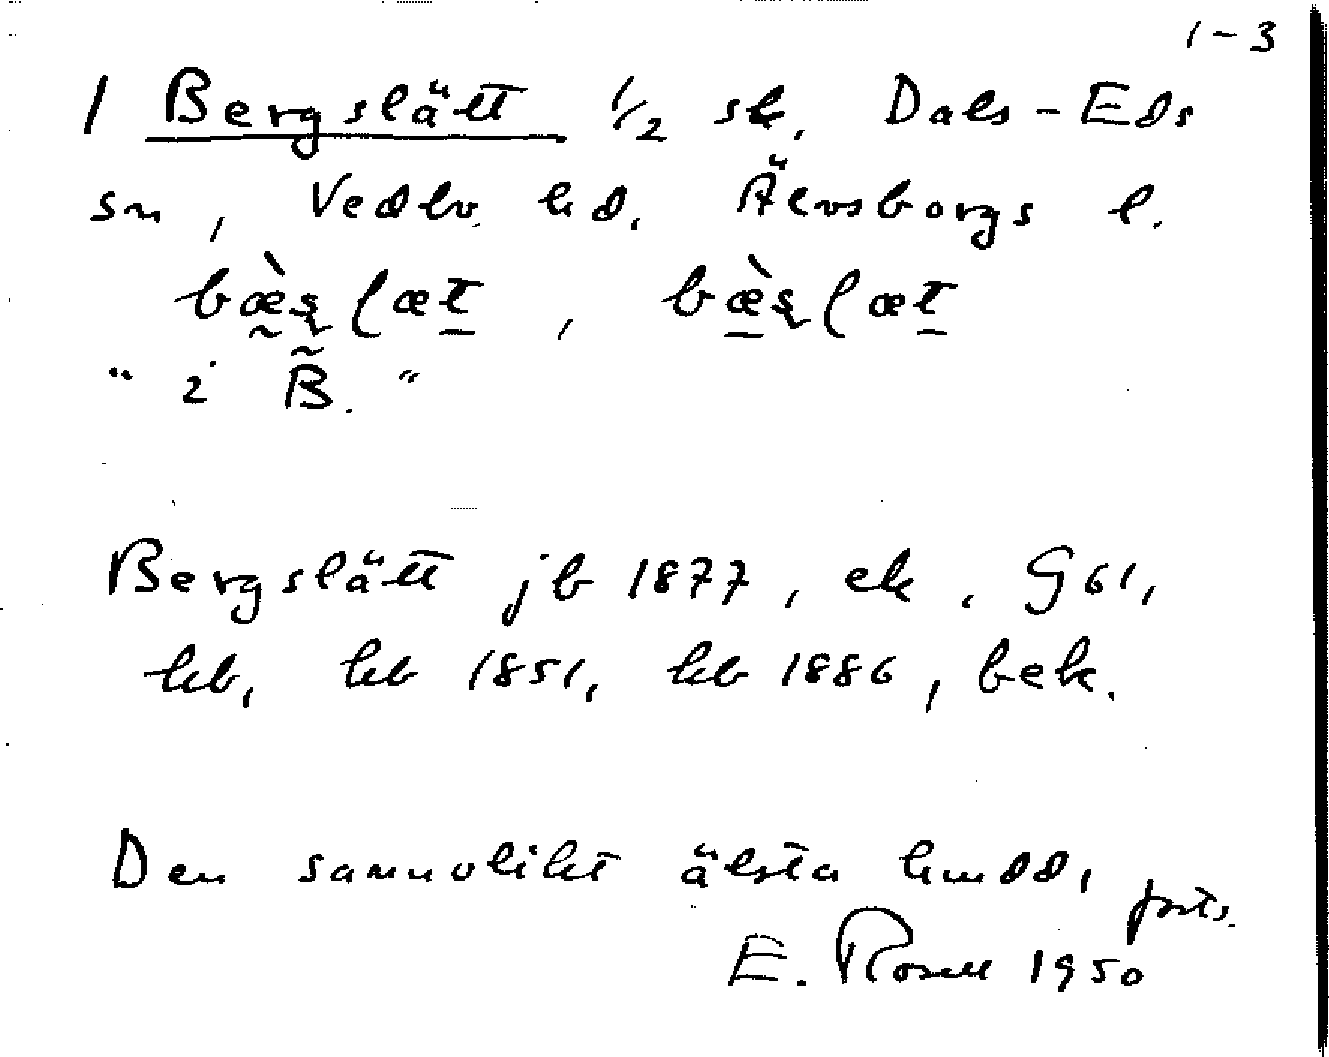 1-3
1 Bergslätt 1/2 sk. Dals-Eds
sn, Vedbo hd. Älvsborgs l.
bæ̀ʂlæt, bæ̀ʂlæt
"i B."
Bergslätt jb 1877, ek, G61,
hb, hb 1851, hb 1886, bek.
Den sannolikt älsta hmdd,
forts.
E. Rosell 1950